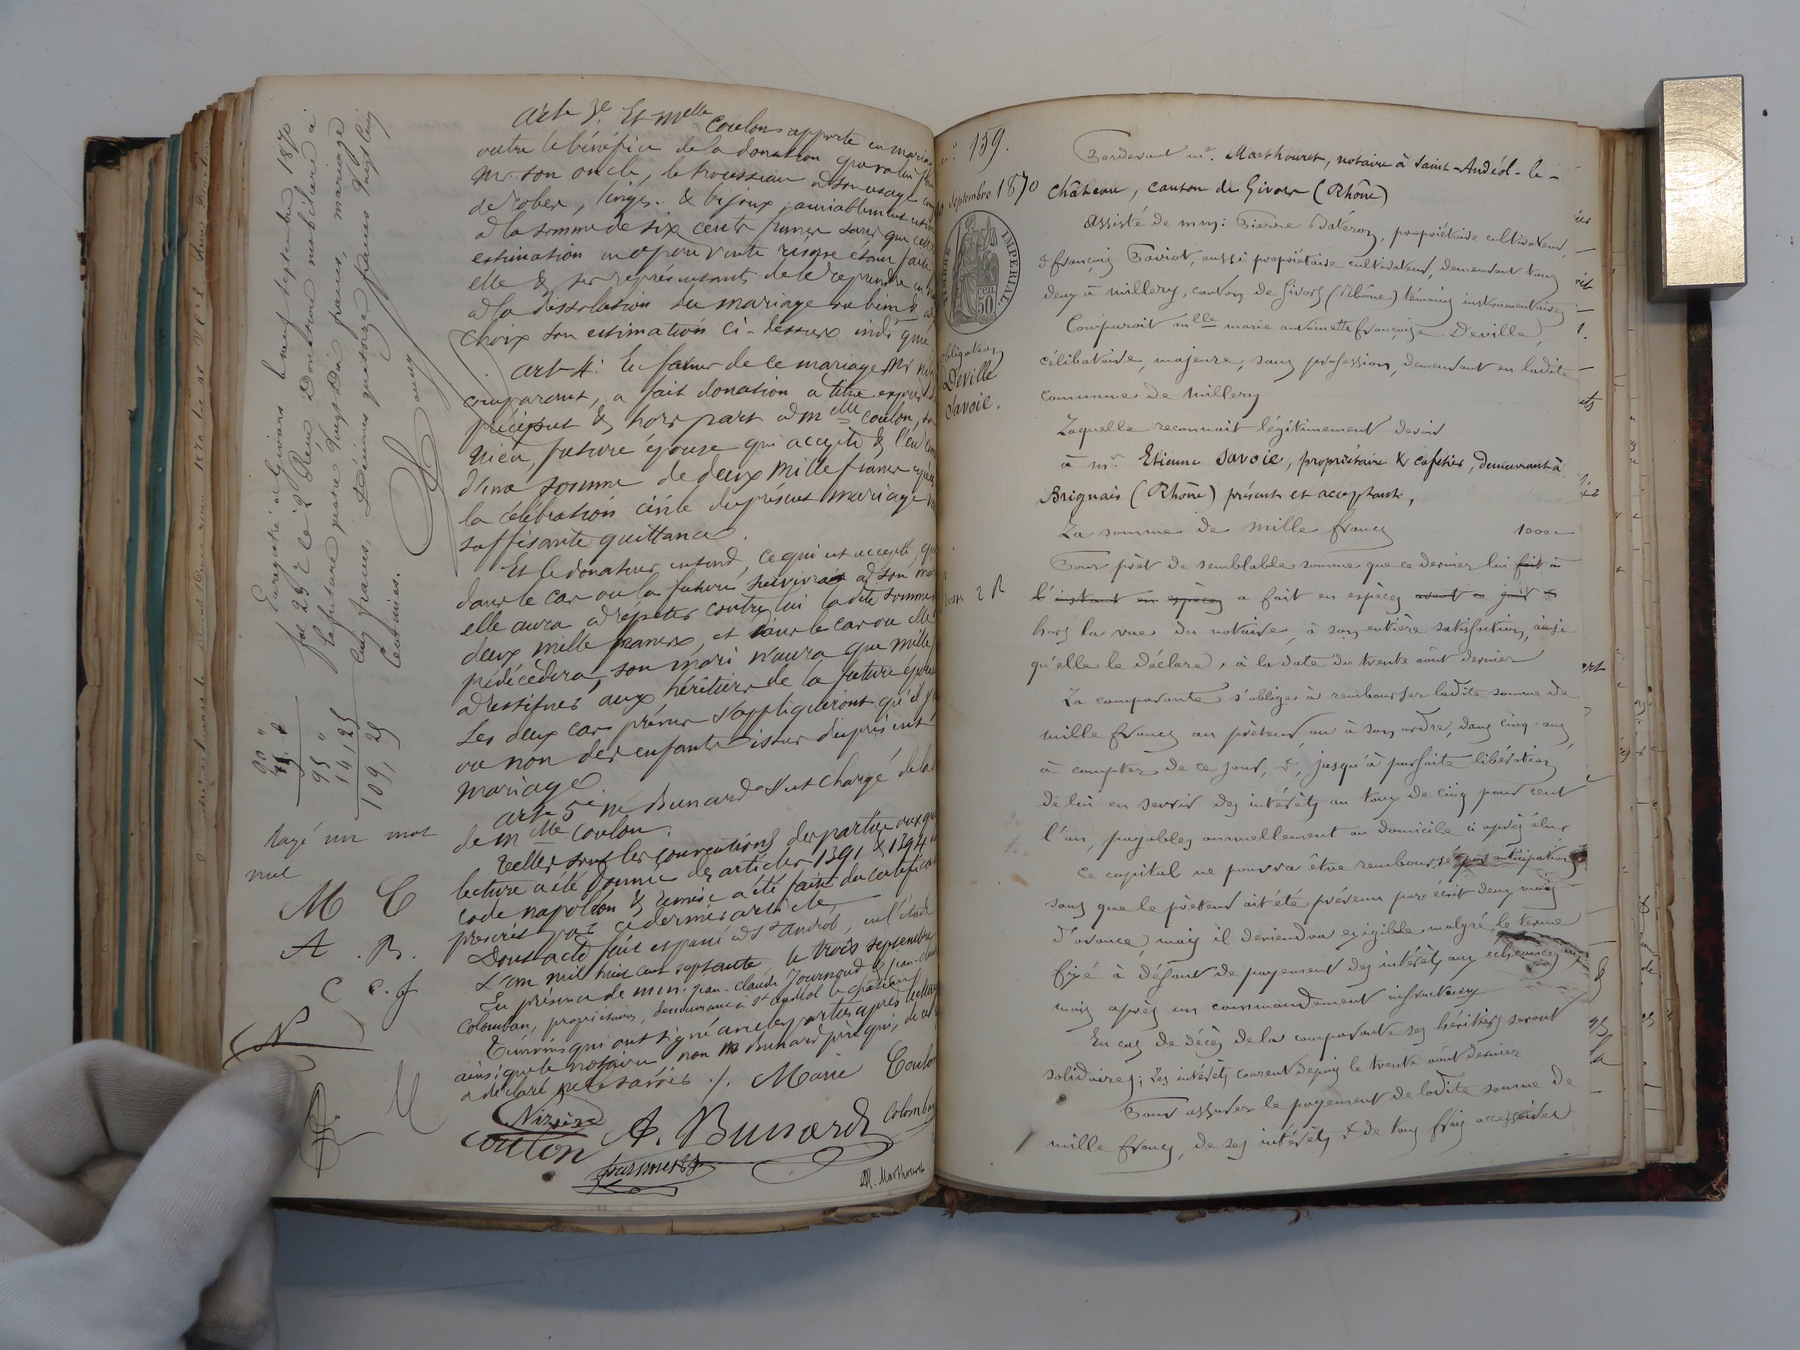 Art 3e. Et Melle Coulon apporte en mariage
outre le bénéfice de la donation que va lui faire
Mr son oncle, le trousseau à son usage
de robes, linges & bijoux, amiablement estimé
à la somme de six cents francs sans que cette
estimation en opère vente réserve étant faite
elle & ses représentants de le reprendre en
à la dissolution du mariage ou bien
choix son estimation ci-dessus indiquée
Art 4: En faveur de ce mariage Mr
comparant, a fait donation à titre exprès de
préciput & hors part à Melle Coulon, sa
nièce, future épouse qui accepte &
d'une somme de deux mille francs
la célébration civile du présent mariage
suffisante quittance.
Et le donateur entend, ce qui est accepté, que
dans le cas où la future survivrait à son mari
elle aura à répéter contre lui ladite somme
deux mille francs, et dans le cas où elle
prédécèdera, son mari n'aura que mille
à restituer aux héritiers de la future épouse
Les deux cas prévus s'appliqueront qu'il y
ou non des enfants issus du présent
mariage
Art 5e Mr Bunard s'est chargé de la
de Melle Coulon.
Telles sont les conventions des parties auxquelles
lecture a été donnée des articles 1391 & 1394
code napoléon & remise a été faite du certificat
prescrit par ce dernier article
Dont acte fait et passé à St Andéol, en l'étude
L'an mil huit cent septante le trois septembre
En présence de MM. Jean-Claude Journoud & Jean-
Colomban, propriétaires, demeurant à St Andéol le château
Témoins qui ont signé avec les parties après lecture
ainsi que le notaire non Mr Bunard père qui, de ce
a déclaré ne le savoir ./. Marie Coulon
Nizière
Coulon A. Bunard Colomban
Journoud
M. Marthouret
Enregistré à Givors le neuf septembre 1870
fol 25 r c 2 Reçu Donation mobilière à
la future quatre vingt dix francs, mariage
cinq francs, Décimes quatorze francs vingt cinq
centimes.
90 "
5 "
95 "
14,25
109,25
Rayé un mot
nul
M C
A . B.
C C. J
N
n° 159.
septembre 1870
TIMBRE IMPERIAL
50 cen
Obligation
Deville
Savoie.
2 R
Pardevant Me. Marthouret, notaire à Saint-Andéol-le-
Château, canton de Givors (Rhône)
Assisté de MM: Pierre Batéron, propriétaire cultivateur,
& françois Paviot, aussi propriétaire cultivateur, demeurant tous
deux à Millery, canton de Givors (Rhône) témoins instrumentaires
Comparait Mlle Marie antoinette françoise Deville,
célibataire, majeure, sans profession, demeurant en ladite
commune de Millery
Laquelle reconnait légitimement devoir
à Mr. Etienne Savoie, propriétaire & cafetier, demeurant à
Brignais (Rhône) présent et acceptant,
La somme de mille francs 1000 -
Pour prêt de semblable somme que ce dernier lui fait à
l'instant en espèces a fait en espèces avant ce jour &
hors la vue du notaire, à son entière satisfaction, ainsi
qu'elle le déclare, à la date du trente aôut dernier
La comparante s'oblige à rembourser ladite somme de
mille francs au prêteur, ou à son ordre, dans cinq ans,
à compter de ce jour, &, jusqu'à parfaite libération
de lui en servir des intérêts au taux de cinq pour cent
l'an, payables annuellement au domicile ci après élu
Ce capital ne pourra être remboursé par anticipation
sans que le prêteur ait été prévenu par écrit deux mois
d'avance, mais il deviendra exigible malgré le terme
fixé à défaut de payement des intérêts aux échéances un
mois après un commandement infructueux
En cas de décès de la comparante ses héritiers seront
solidaires; Les intérêts courent depuis le trente aôut dernier
Pour assurer le payement de ladite somme de
mille francs, de ses intérêts & de tous frais accessoires